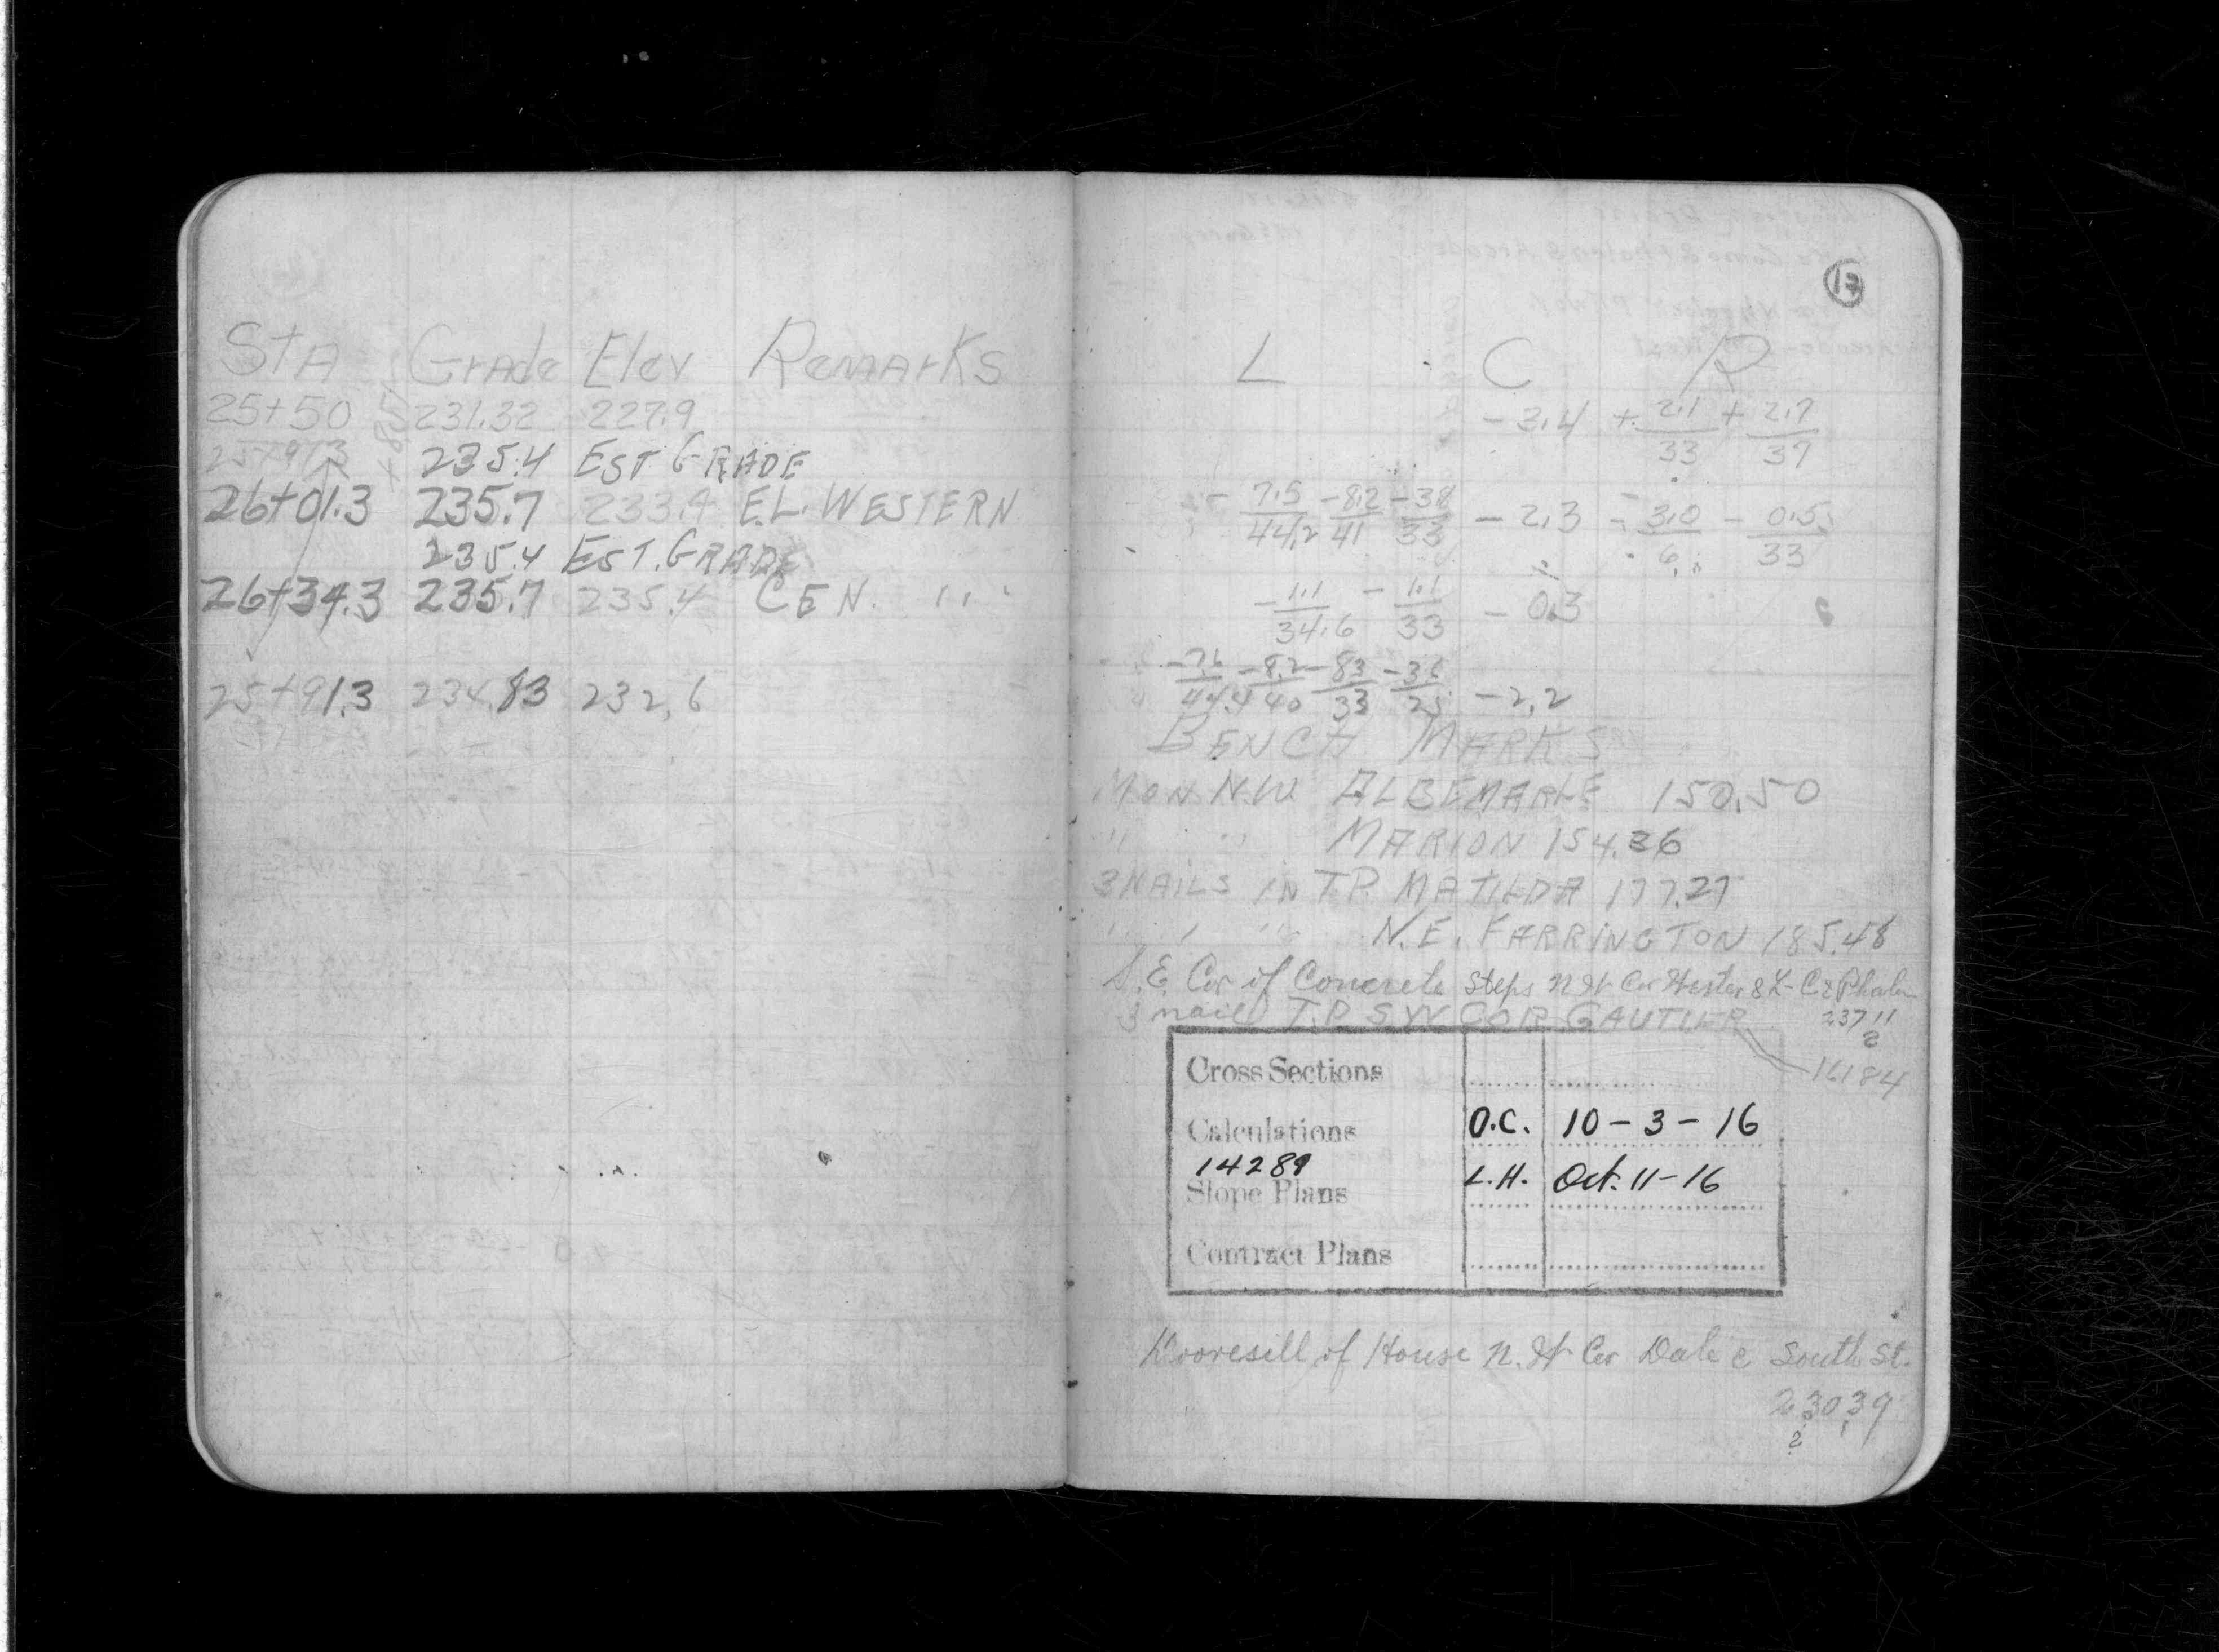 StA Grade Elev Remarks
25+50 231.32 227.9
25+91.3 235.4 EST GRADE
26+01.3 235.7 233.4 E.L. WESTERN
235.4 EST. GRADE
26+34.3 235.7 235.4 CEN. " "
25+91.3 234.83 232.6
17
L C R
-3.4 + 2.1/33 + 2.7/37
- 7.5/44.2 - 8.2/41 - 3.8/33 - 2.3 - 3.0/6 - 0.5/33
- 1.1/34.6 - 1.1/33 - 0.3
- 7.6/44.4 - 8.2/40 - 8.3/33 - 3.6/25 - 2.2
BENCH MARKS
MON N.W. ALBEMARLE 150.50
" " MARION 154.36
3 NAILS IN T.P. MATILDA 177.27
" " " N.E. FARRINGTON 185.48
S.E. Cor of Concrete Steps N W Cor Wester & L-C & Phalen
3 nails T.P. S W COR GAUTIER 237 11
?
161 84
Cross Sections
Calculations O.C. 10-3-16
14289
Slope Plans L.H. Oct. 11-16
Contract Plans
Dooresill of House N. W Cor Dale & South St.
230,39
?